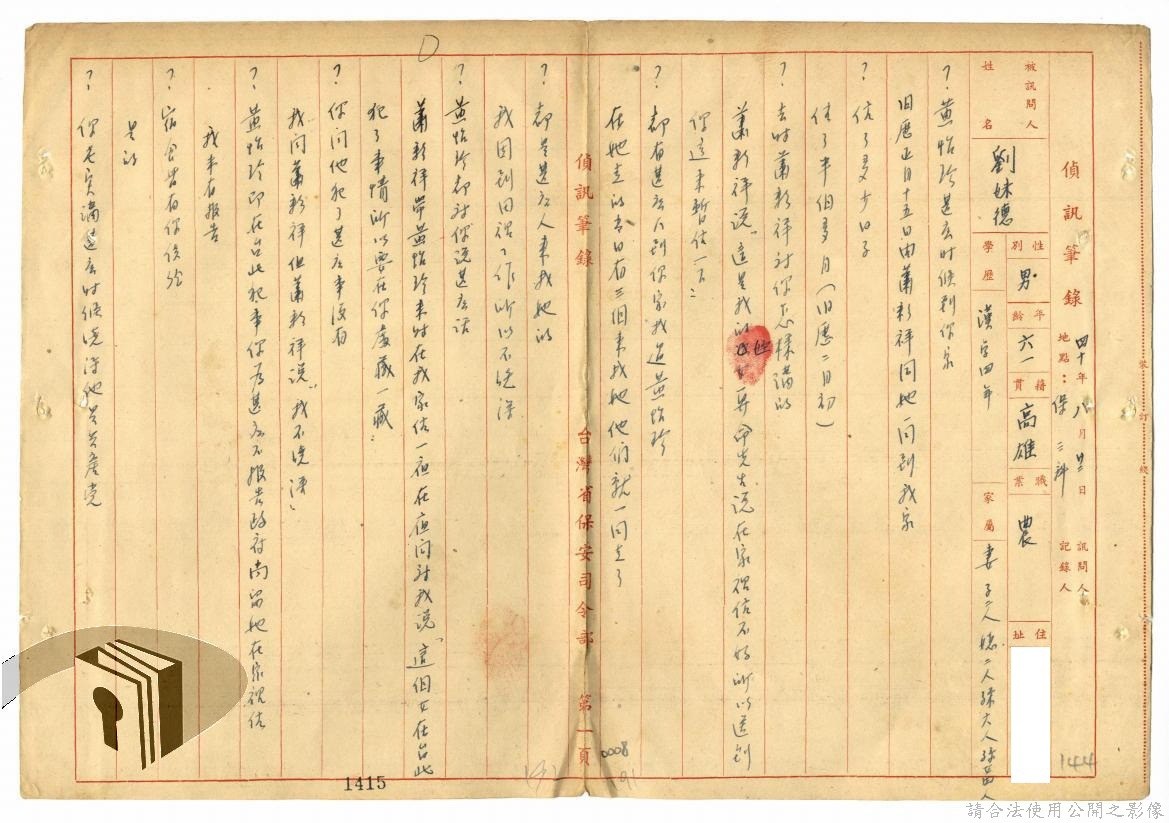 偵訊筆錄
四十年八月廿二日
地點：保三科
訊問人
記錄人
被訊問人
姓名
劉妹德
性別
男
年齡
六一
籍貫
高雄
職業
農
住址
學歷
漢字四年
家屬
妻子二人媳二人孫六人
？黃怡珍甚麼時候到你家
旧歷正月十五日由蕭彩祥同她一同到我家
？住了多少日子
住了半個多月（旧歷二月初）
？去時蕭彩祥對你怎樣講的
蕭彩祥說“這是我的 說在家裡住不好所以送到
你這來暫住一下”
？都有甚麼人到你家找過黃怡珍
在她走的當日有三個來找她他們就一同走了
？都是甚麼人來找她的
我因到田裡工作所以不曉得
？黃怡珍都對你說甚麼話
蕭彩祥帶黃怡珍來時在我家住一夜在夜間對我說“這個女在台北
犯了事情所以要在你處藏一藏”
？你問他犯了甚麼事沒有
我問蕭彩祥但蕭彩祥說“我不曉得”
？黃怡珍即在台北犯事你為甚麼不報告政府尚留她在家裡住
我未有報告
？宿食皆有你供給
是的
？你老實講甚麼時候曉得他是共產党
台灣省保安司令部
第一頁
偵訊筆錄
裝訂線
0008
191
192
144
1415
請合法使用公開之影像